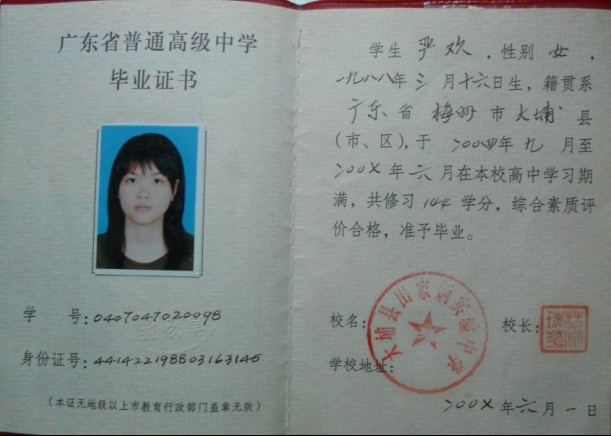 广东省普通高级中学
毕业证书
学 号：0407047020098
身份证号：441422198803163145
（本证无地级以上市教育行政部门盖章无效）
学生 严欢 ，性别 女 ，
一九八八年 三 月十六日生，籍贯系
广东 省 梅州 市 大埔 县
（市、区），于 二〇〇四年 九 月至
二〇〇七 年 六 月在本校高中学习期
满，共修习 144 学分，综合素质评
价合格，准予毕业。
校名：
大埔县田家炳实验中学
校长：
学校地址：
二〇〇七 年 六 月 一 日